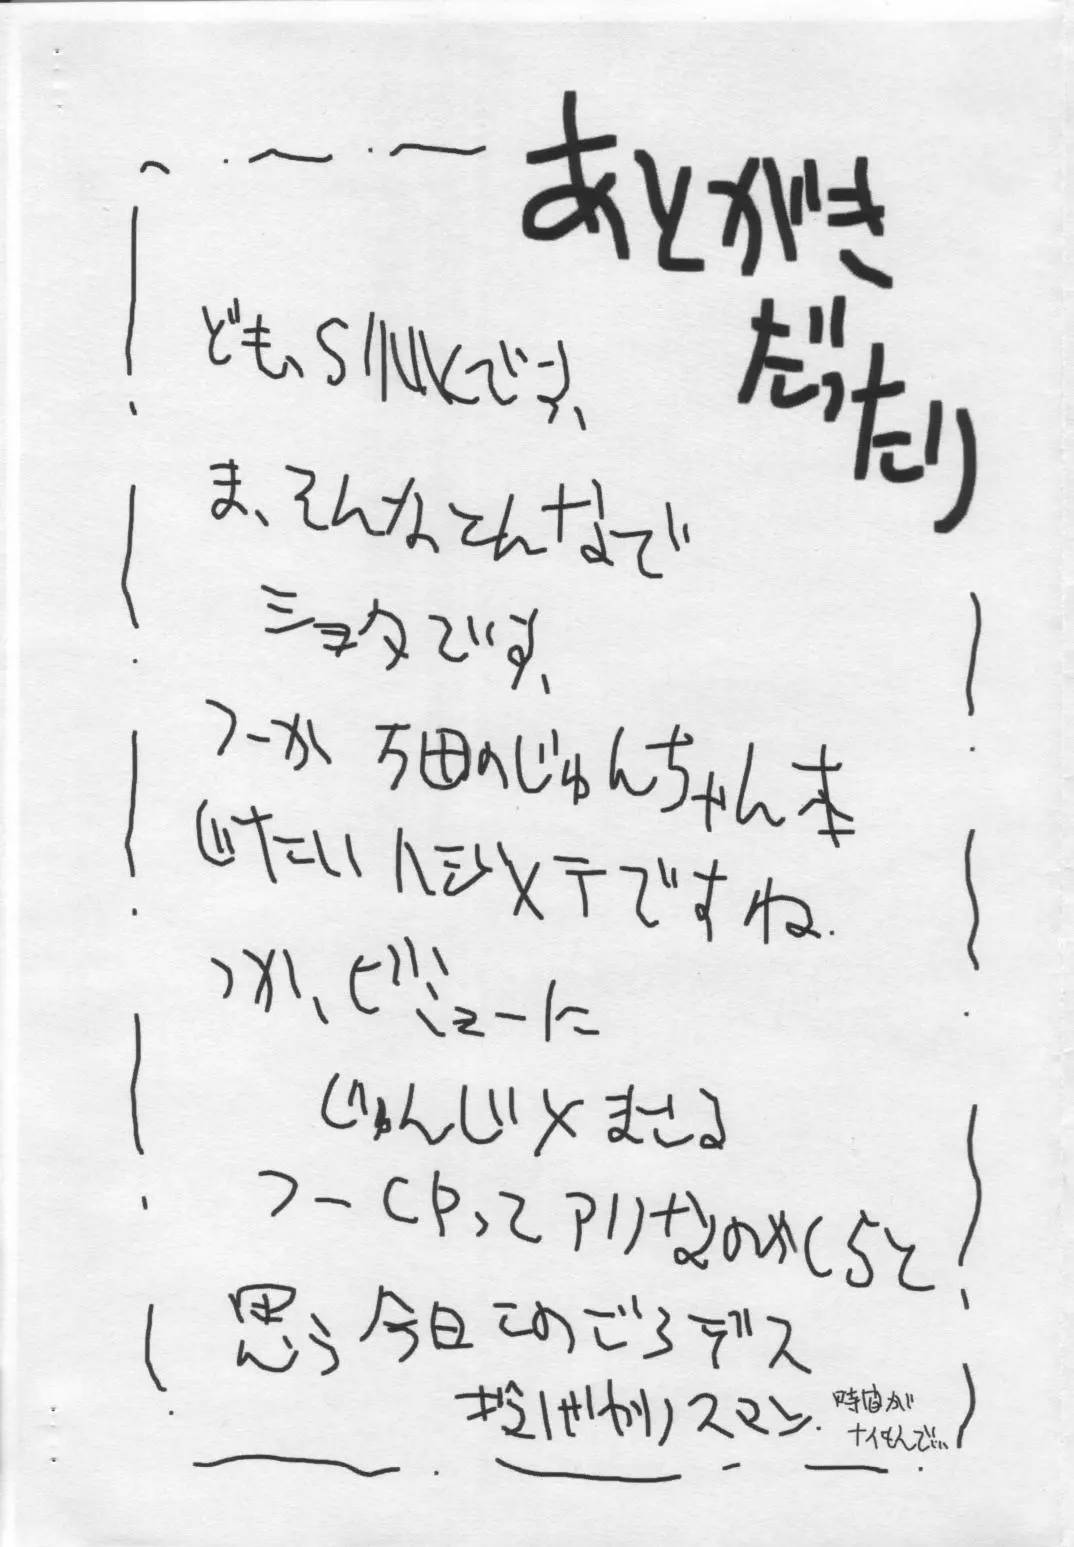 あとがき
だったり
ども、SINKです、
ま、そんなこんなで
ショタです、
つーか 万田のじゅんちゃん本
じたいハジメテですね.
つか、ビジュー に
じゅんじ×まさる
つーCPってアリなのかしらと
思う今日このごろデス
スマン.
時間が
ナイもんで…